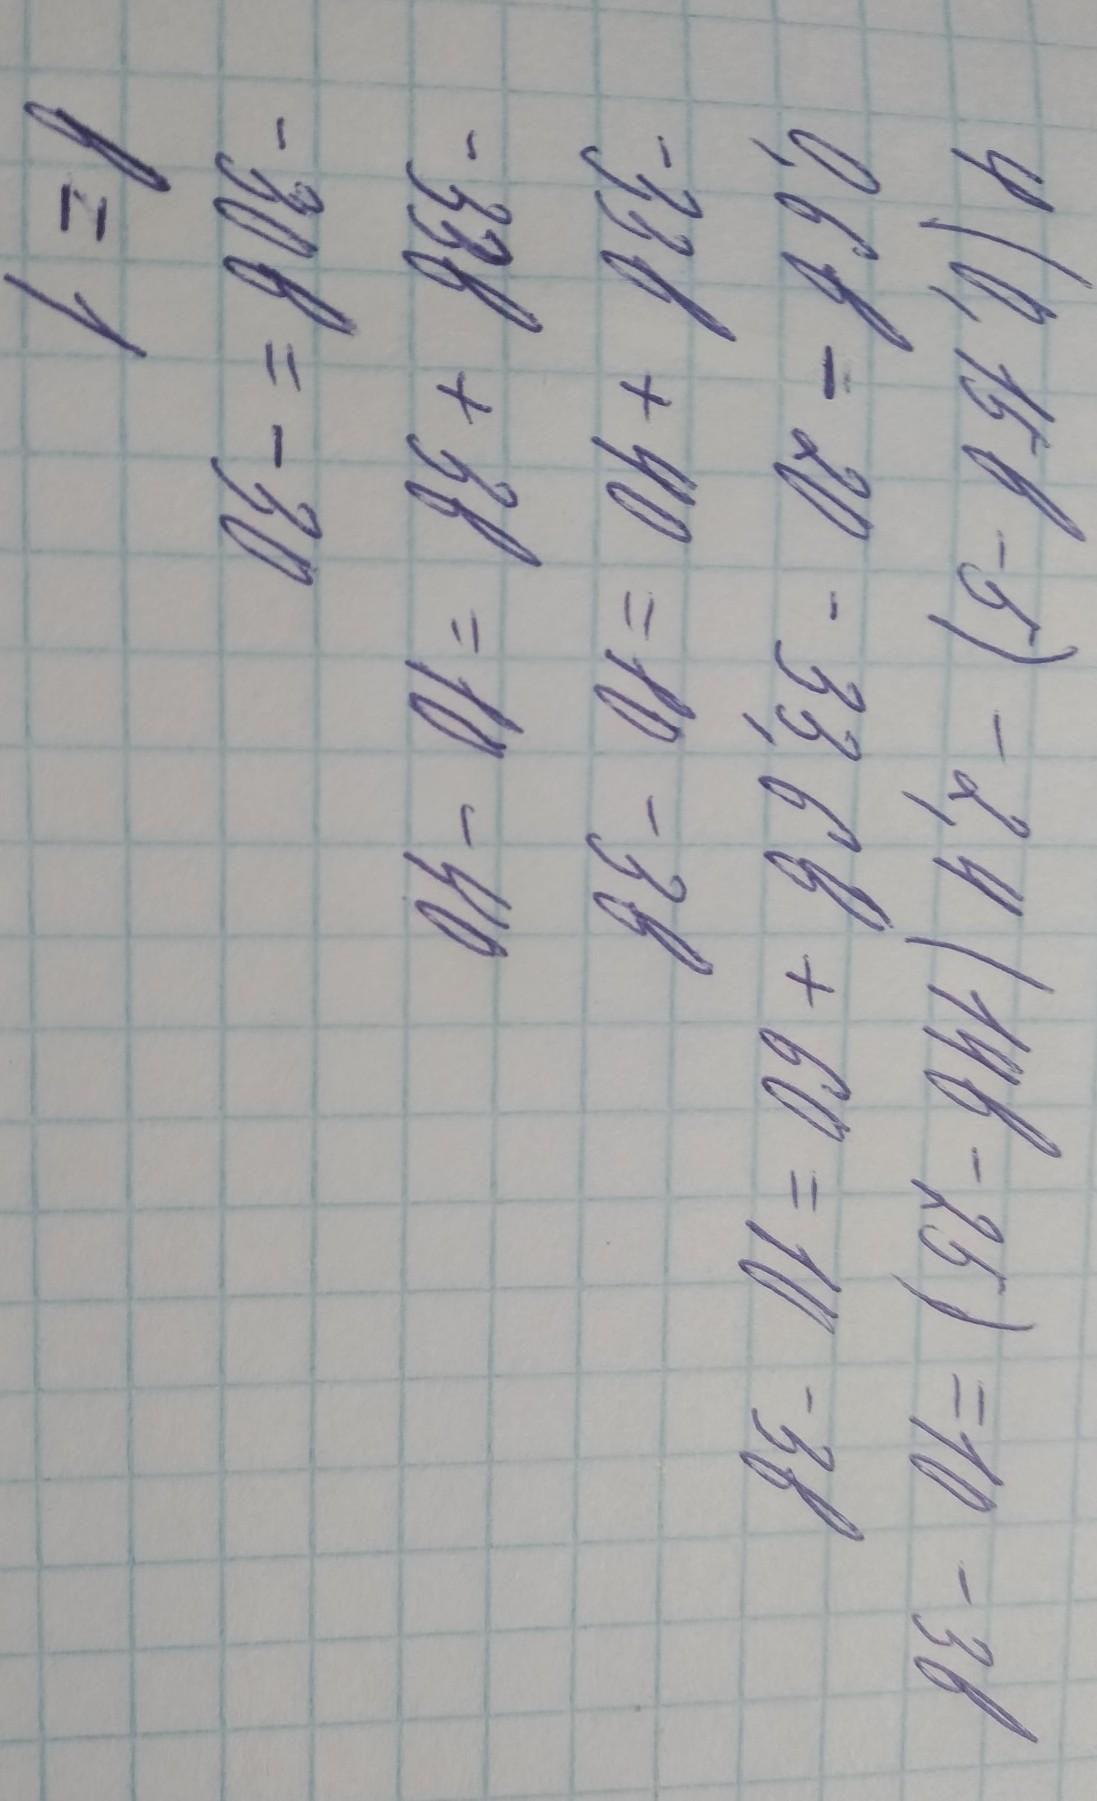 4(0,15b - 5) - 2,4(14b - 25) = 10 - 3b
0,6b - 20 - 33,6b + 60 = 10 - 3b
-33b + 40 = 10 - 3b
-33b + 3b = 10 - 40
-30b = -30
b = 1